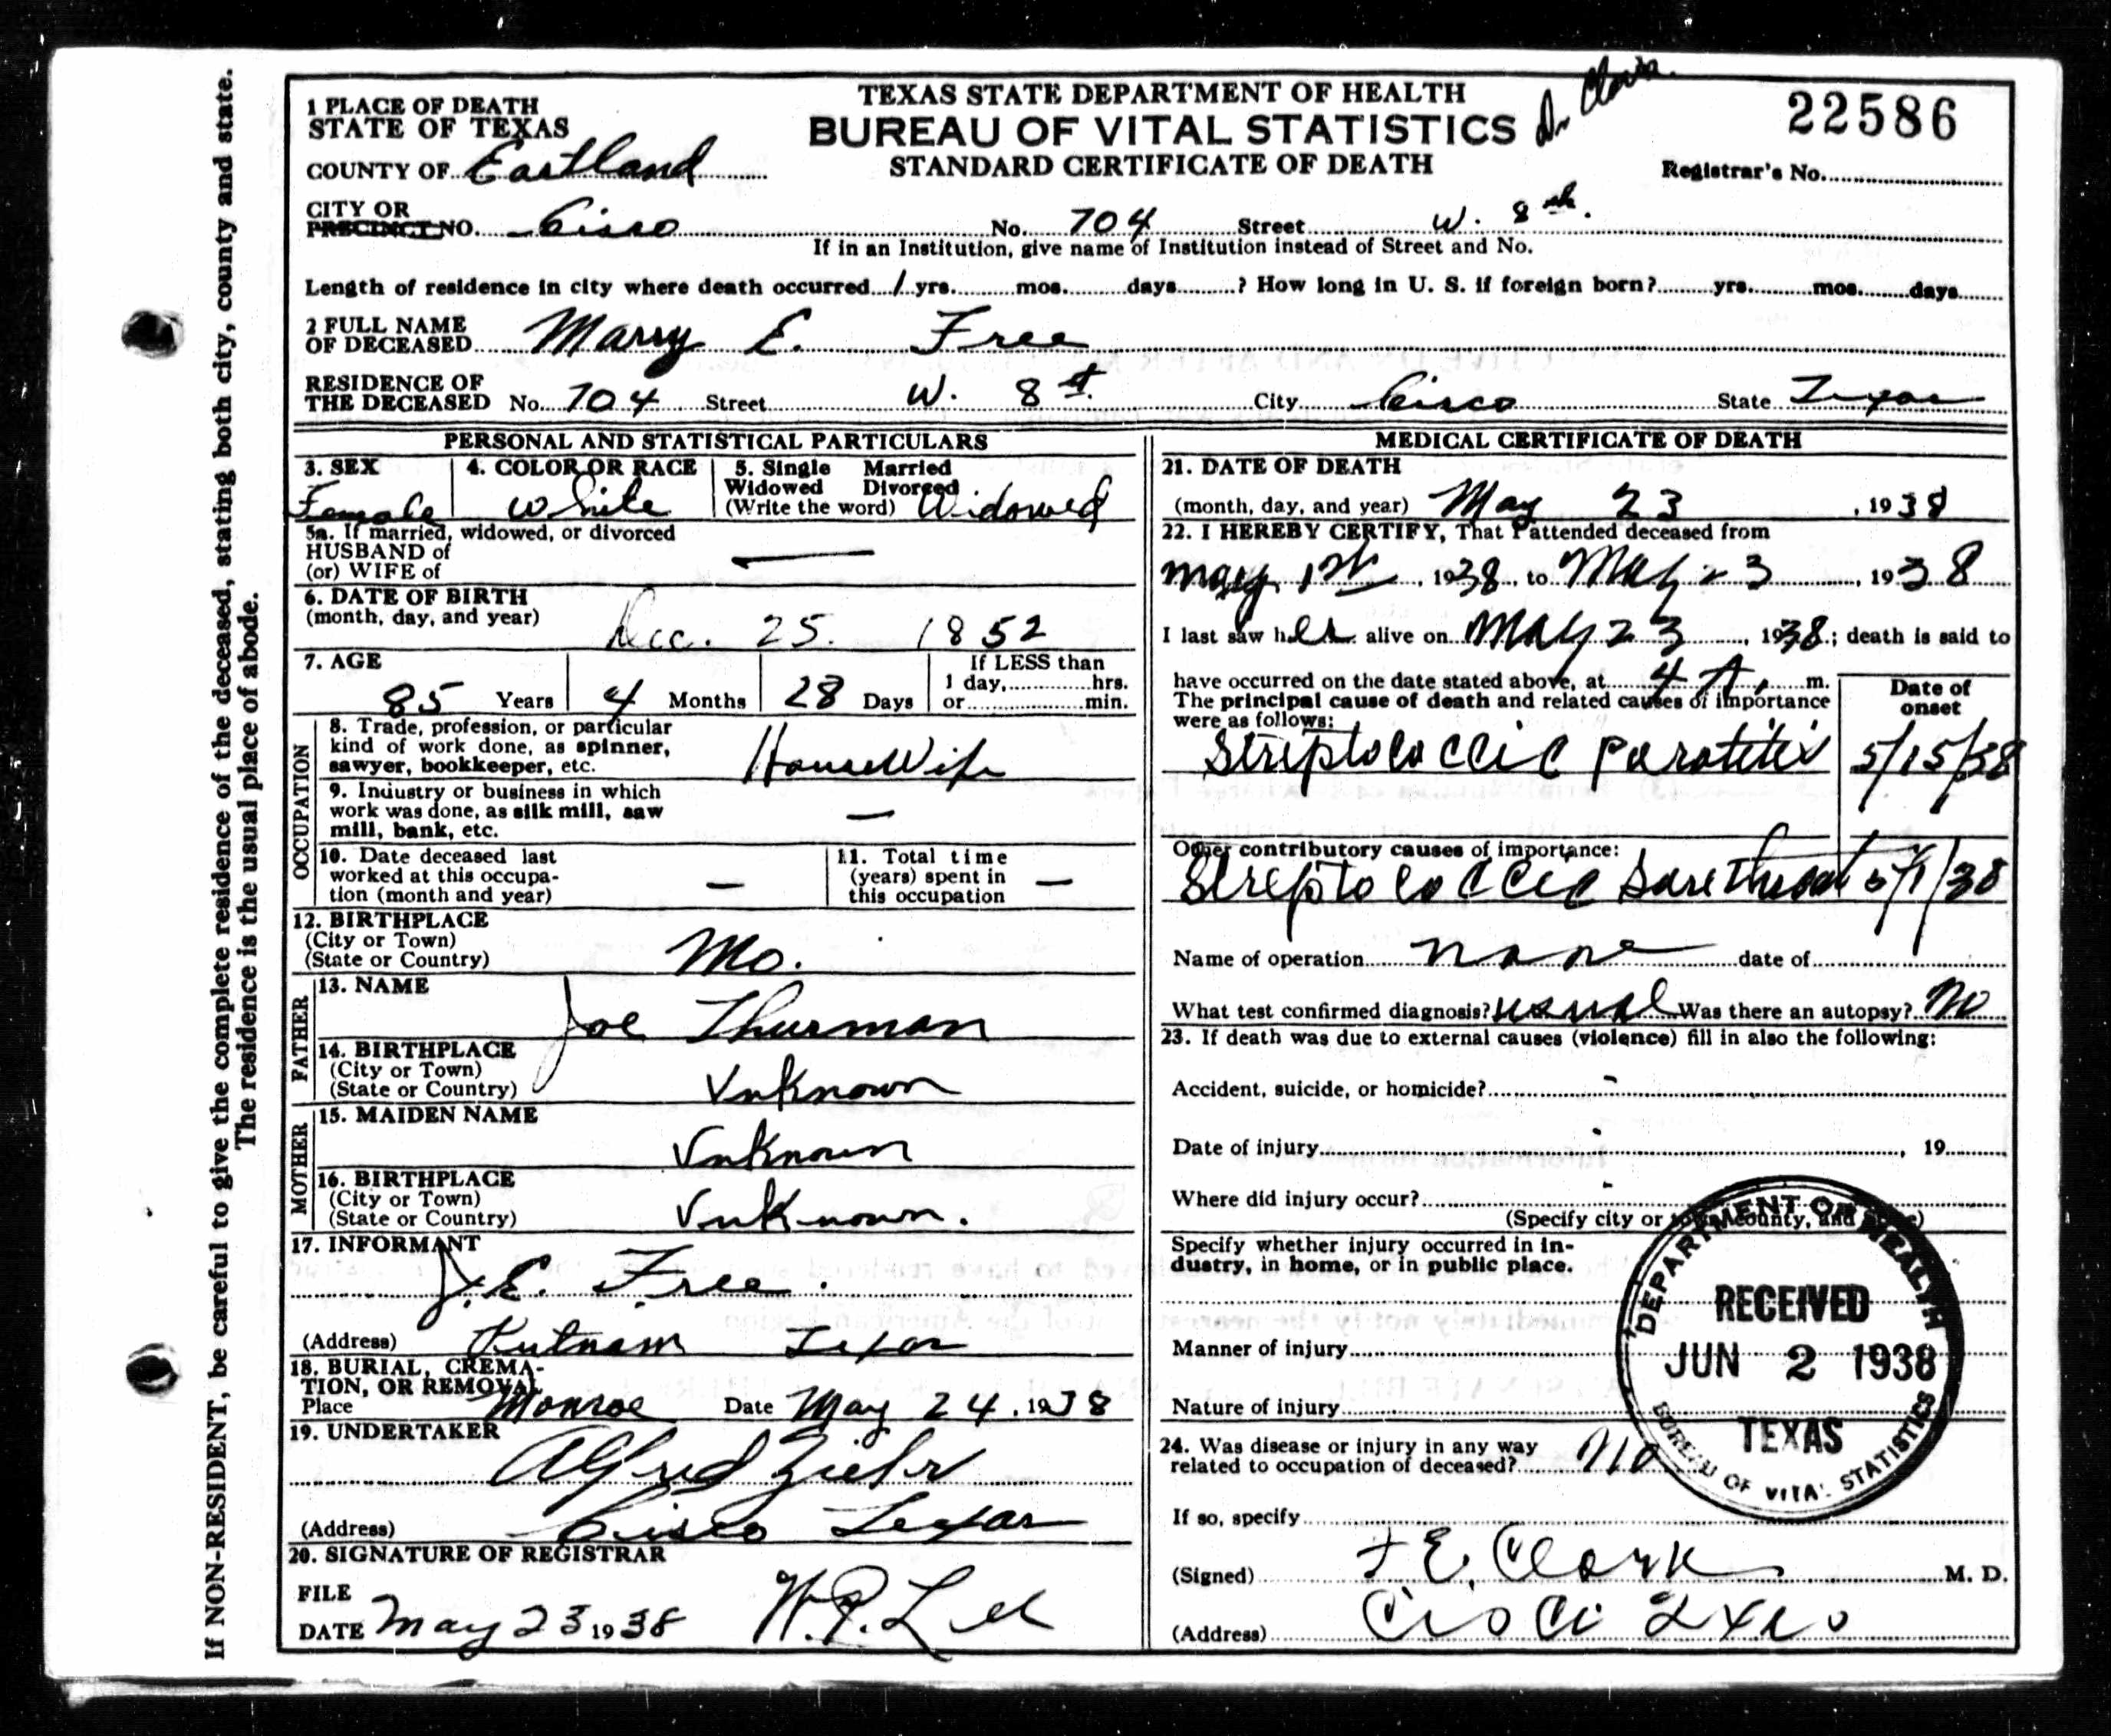 If NON-RESIDENT, be careful to give the complete residence of the deceased, stating both city, county and state.
The residence is the usual place of abode.
1 PLACE OF DEATH
STATE OF TEXAS
COUNTY OF Eastland
TEXAS STATE DEPARTMENT OF HEALTH
BUREAU OF VITAL STATISTICS
STANDARD CERTIFICATE OF DEATH
Dr
22586
Registrar's No.
CITY OR
PRECINCT NO. Cisco No. 704 Street W. 8th.
If in an Institution, give name of Institution instead of Street and No.
Length of residence in city where death occurred 1 yrs. mos. days ? How long in U. S. if foreign born? yrs. mos. days
2 FULL NAME
OF DECEASED Marry E. Free
RESIDENCE OF
THE DECEASED No. 704 Street W. 8st. City Cisco State Texas
PERSONAL AND STATISTICAL PARTICULARS
3. SEX
Female
4. COLOR OR RACE
White
5. Single Married
Widowed Divorced
(Write the word) Widowed
5a. If married, widowed, or divorced
HUSBAND of
(or) WIFE of —
6. DATE OF BIRTH
(month, day, and year) Dec. 25. 1852
7. AGE
85 Years 4 Months 28 Days
If LESS than
1 day, hrs.
or min.
OCCUPATION
8. Trade, profession, or particular
kind of work done, as spinner,
sawyer, bookkeeper, etc. HouseWife
9. Industry or business in which
work was done, as silk mill, saw
mill, bank, etc. —
10. Date deceased last
worked at this occupa-
tion (month and year) —
11. Total time
(years) spent in
this occupation —
12. BIRTHPLACE
(City or Town)
(State or Country) Mo.
FATHER
13. NAME
Joe Thurman
14. BIRTHPLACE
(City or Town)
(State or Country) Unknown
MOTHER
15. MAIDEN NAME
Unknown
16. BIRTHPLACE
(City or Town)
(State or Country) Unknown.
17. INFORMANT
J. E. Free.
(Address) Putnam Texas
18. BURIAL, CREMA-
TION, OR REMOVAL
Place Monroe Date May 24, 1938
19. UNDERTAKER
Alfred Ziehr
(Address) Cisco Texas
20. SIGNATURE OF REGISTRAR
FILE
DATE May 23 1938 W. P. Lee
MEDICAL CERTIFICATE OF DEATH
21. DATE OF DEATH
(month, day, and year) May 23, 1938
22. I HEREBY CERTIFY, That I attended deceased from
May 1st, 1938, to May 23, 1938
I last saw her alive on May 23, 1938; death is said to
have occurred on the date stated above, at 4 A. m.
The principal cause of death and related causes of importance
were as follows:
Date of
onset
Streptococcic parotitis 5/15/38
Other contributory causes of importance:
Streptococcic Sore throat 5/1/38
Name of operation none date of
What test confirmed diagnosis? usual Was there an autopsy? No
23. If death was due to external causes (violence) fill in also the following:
Accident, suicide, or homicide? -
Date of injury, 19
Where did injury occur? -
(Specify city or town, county, and state)
Specify whether injury occurred in in-
dustry, in home, or in public place.
Manner of injury
Nature of injury
24. Was disease or injury in any way
related to occupation of deceased? No
If so, specify
(Signed) F E. Clark M. D.
(Address) Cisco
DEPARTMENT OF HEALTH
RECEIVED
JUN 2 1938
TEXAS
BUREAU OF VITAL STATISTICS